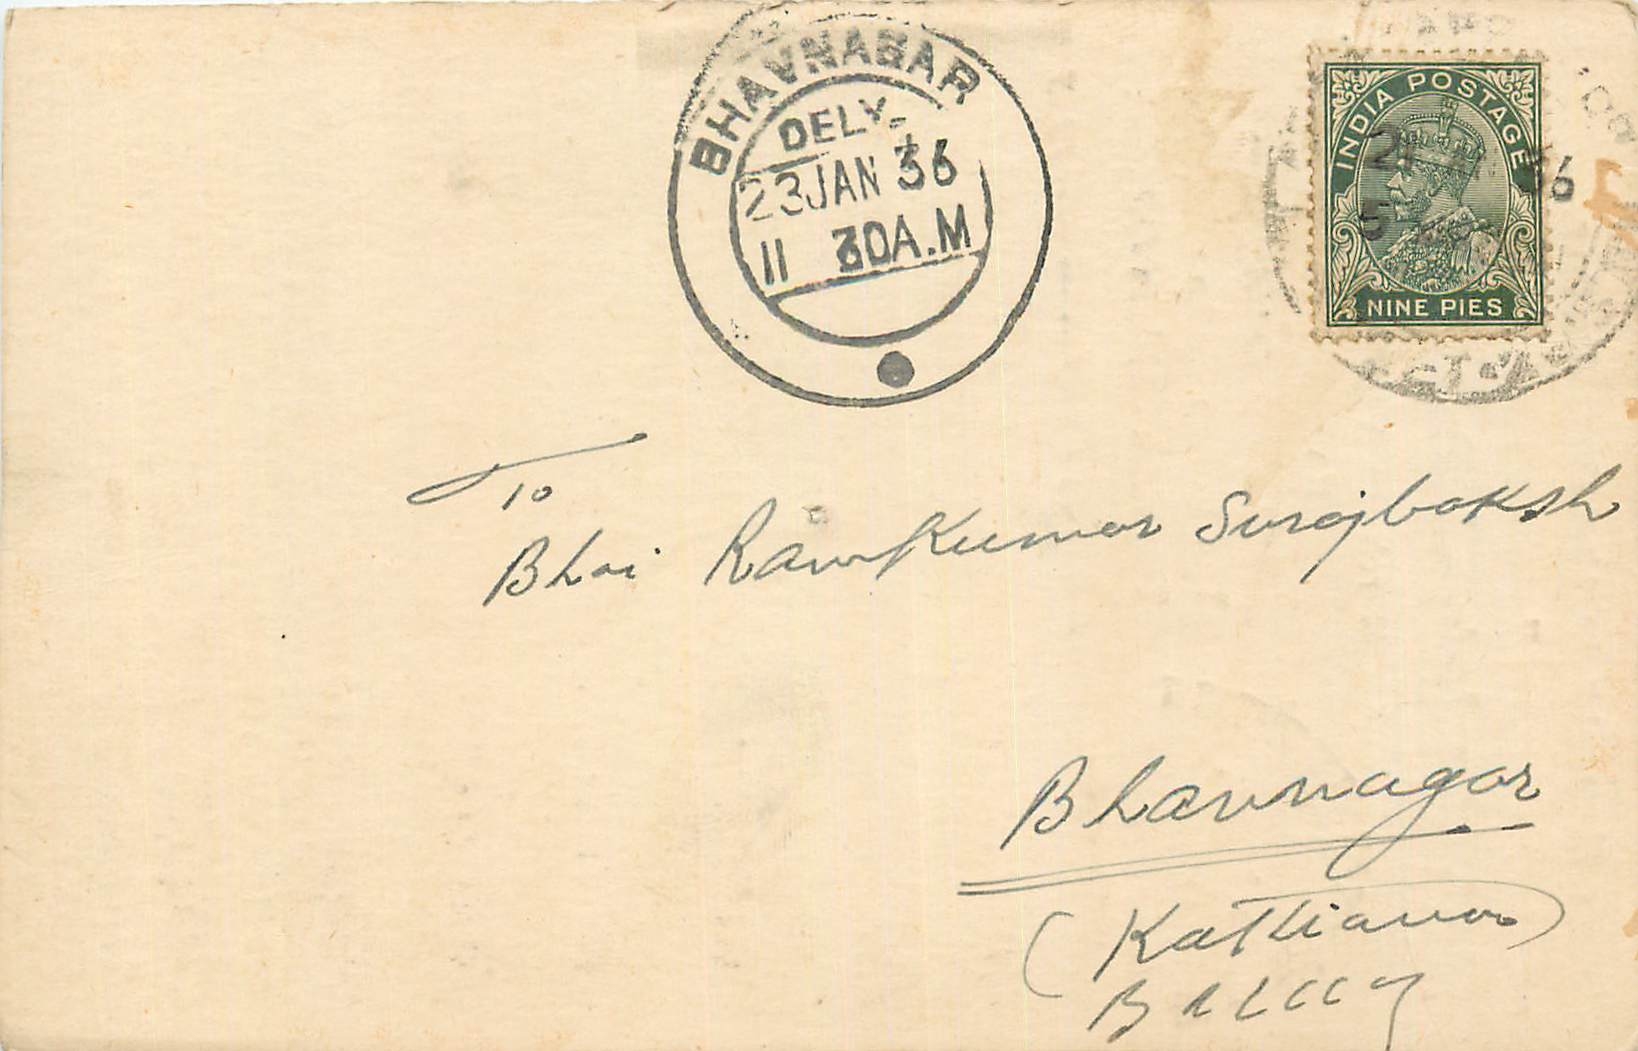 BHAVNAGAR
DELY.
23 JAN 36
11 30 A.M
INDIA POSTAGE
NINE PIES
36
To
Bhai Ramkumar Surajbaksh
Bhavnagar
(Kathiawar)